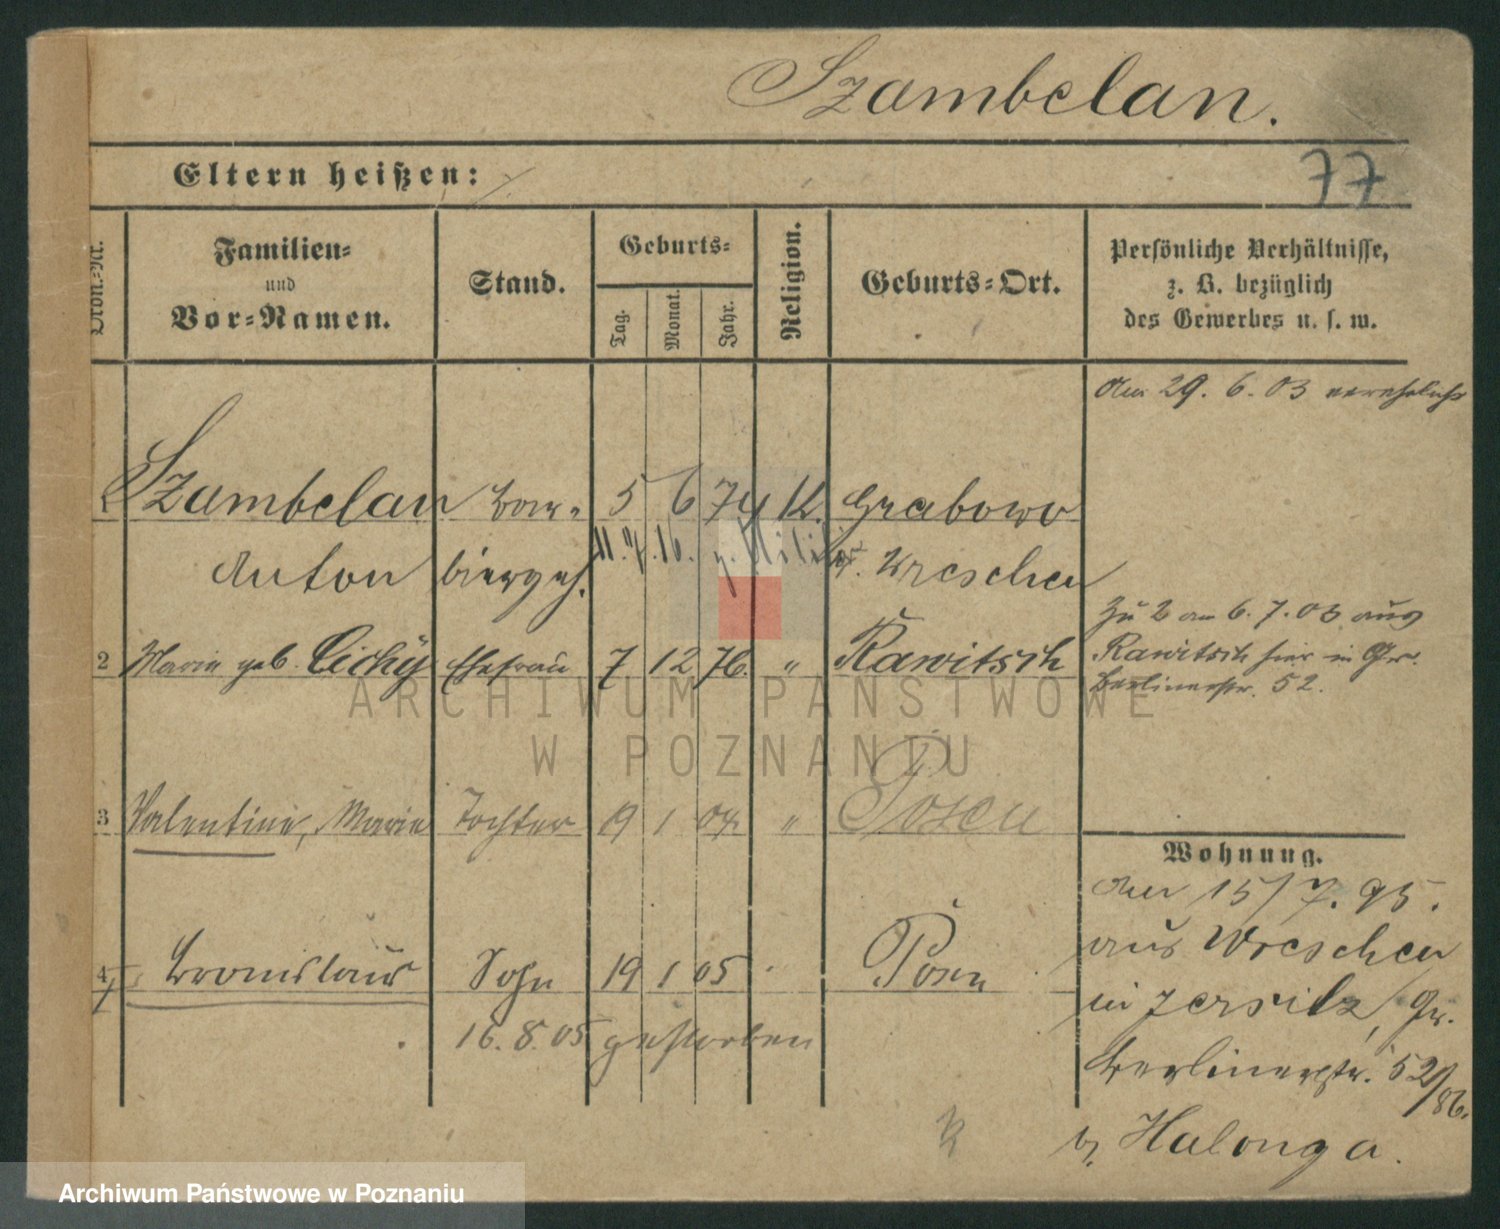 Szambelan.
77
Eltern heißen:
Ordn.-Nr.
Familien-
und
Vor-Namen.
Stand.
Geburts-
Tag.
Monat.
Jahr.
Religion.
Geburts-Ort.
Persönliche Verhältnisse,
z. B. bezüglich
des Gewerbes u. s. w.
den 29. 6. 03 verehelicht
1 Szambelan Bar- 5 6 74 k. Grabowo
Anton biergeh. Kr. Wreschen
11. 4. 16. z. Milit
Zu 2 am 6. 7. 03 aus
2 Marie geb. Cichy Ehefrau 7 12 76. " Rawitsch
Rawitsch hier in Gr.
Berlinerstr. 52.
ARCHIWUM PAŃSTWOWE
W POZNANIU
3 Valentine, Marie Tochter 19 1 04 " Posen
Wohnung.
den 15/7. 95.
aus Wreschen
4 Bronislaus Sohn 19 1 05 Posen
in Jersitz, Gr.
16. 8. 05 gestorben
Berlinerstr. 52/86.
b. Halonga.
Archiwum Państwowe w Poznaniu